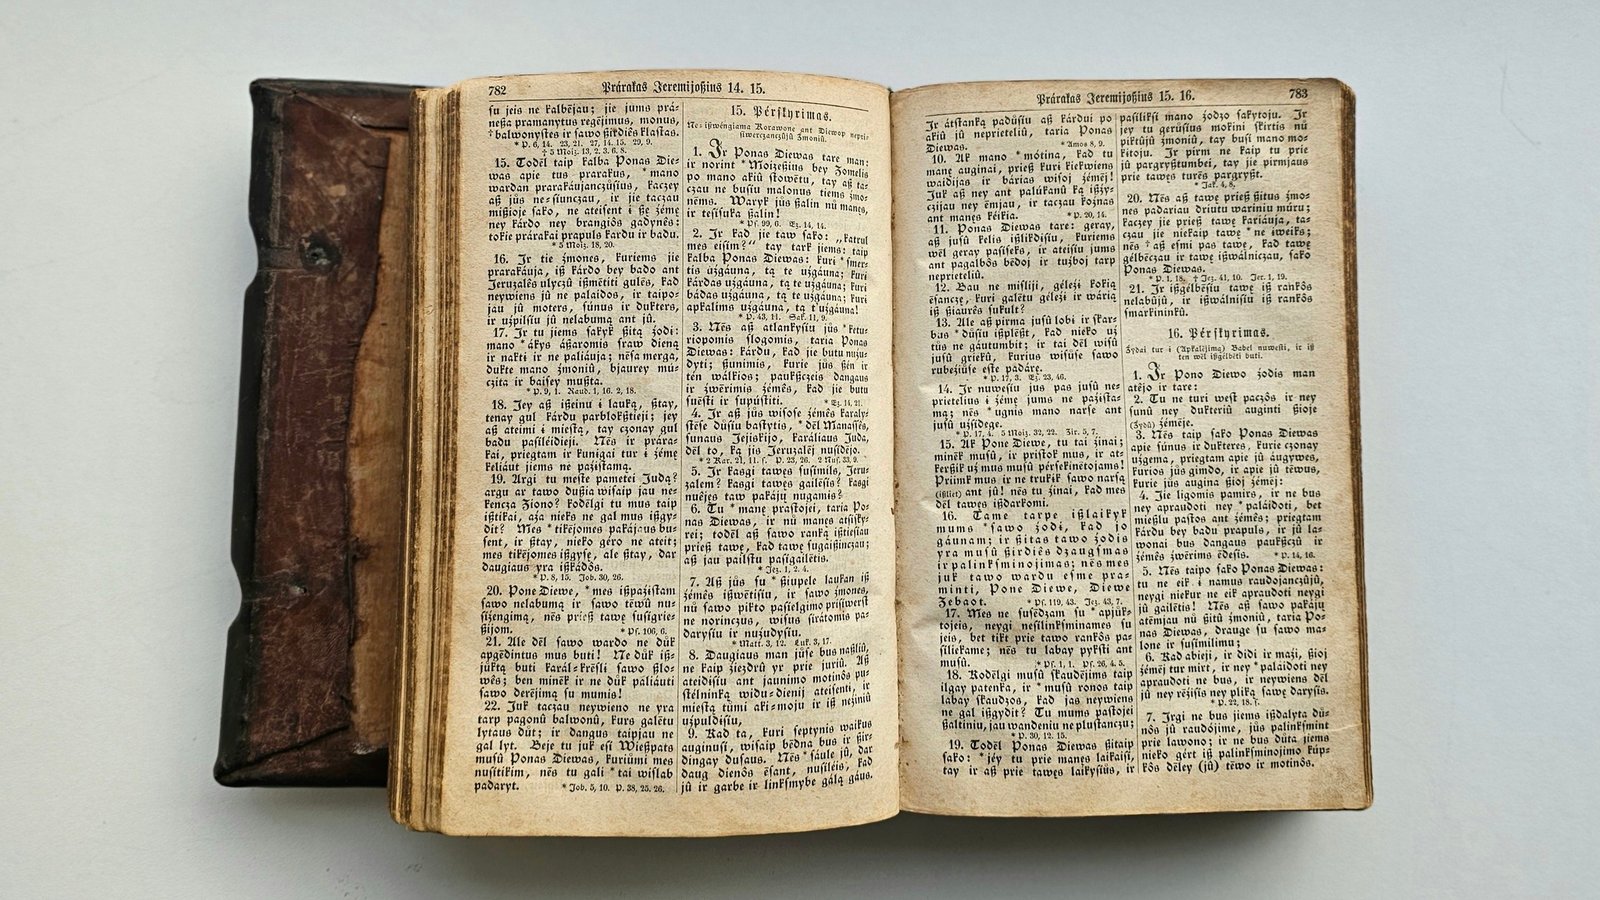 782 Prárakas Jeremijoßius 14. 15.
ſu jeis ne kalbėjau; jie jums prá-
neßa pramanytus regėjimus, monus,
† balwonyſtes ir ſawo ßirdiės klaſtas.
* P. 6, 14. 23, 21. 27, 14. 15. 29, 9.
† 5 Moiz. 13, 2. 3. 6. 8.
15. Todėl taip kalba Ponas Die-
was apie tus prarakus, * mano
wardan prarakáujanczůſius, kaczey
aß jůs ne-ſiuncʒau, ir jie taczau
mißioje ſako, ne ateiſent i ßę źémę
ney kárdo ney brangiôs gadynês:
tokie prárakai prapuls kardu ir badu.
* 5 Moiz. 18, 20.
16. Ir tie źmones, kuriems jie
prarakáuja, iß kárdo bey bado ant
Jeruzalês ulyczů ißmėtiti gulės, kad
neywiens jû ne palaidos, ir taipo-
jau jû moters, ſúnus ir dukters,
ir użpilſiu jû nelabumą ant jû.
17. Ir tu jiems ſakyk ßitą źodi:
mano * ákys áßaromis ſraw dieną
ir nakti ir ne paliáuja; nėſa merga,
dukte mano źmoniû, bjaurey mú-
czita ir baiſey mußta.
* P. 9, 1. Raud. 1, 16. 2, 18.
18. Jey aß ißeinu i lauką, ßtay,
tenay gul kárdu parblokßtieji; jey
aß ateimi i mieſtą, tay czonay gul
badu paſilėidieji. Nės ir prára-
kai, priegtam ir kunigai tur i źémę
keliáut jiems ne paźiſtamą.
19. Argi tu meſte pametei Judą?
argu ar tawo dußia wiſaip jau ne-
kencza Ziono? kodėlgi tu mus taip
ißtikai, aźa nieks ne gal mus ißgy-
dit? Mes * tikėjomes pakájaus bu-
ſent, ir ßtay, nieko géro ne ateit;
mes tikėjomes ißgyſę, ale ßtay, dar
daugiaus yra ißkádôs.
* P. 8, 15. Job. 30, 26.
20. Pone Diewe, * mes ißpaźiſtam
ſawo nelabumą ir ſawo tėwû nu-
ſiźengimą, nės prieß tawę ſuſigrie-
ßijom. * Pſ. 106, 6.
21. Ale dėl ſawo wardo ne důk
apgėdintus mus buti! Ne důk iß-
jůktą buti karál-krėſli ſawo ßlo-
wês; ben minėk ir ne důk paliáuti
ſawo derėjimą ſu mumis!
22. Juk taczau neywieno ne yra
tarp pagonû balwonû, kurs galėtu
lytaus důt; ir dangus taipjau ne
gal lyt. Beje tu juk eſi Wießpats
muſû Ponas Diewas, kuriůmi mes
nuſitikim, nės tu gali * tai wiſlab
padaryt. * Job. 5, 10. P. 38, 25. 26.
15. Pérſkyrimas.
Ne-ißwéngiama Korawone ant Diewop nepri-
ſiwerczanczůjû Źmoniû.
1. Ir Ponas Diewas tare man:
ir norint * Moizeßius bey Zomelis
po mano akiû ſtowėtu, tay aß ta-
czau ne buſiu malonus tiems źmo-
nėms. Waryk jůs ßalin nů manęs,
ir teſiſuka ßalin!
* Pſ. 99, 6. Ez. 14, 14.
2. Ir kad jie taw ſako: „katrul
mes eiſim?“ tay tark jiems: taip
kalba Ponas Diewas: kuri * ſmer-
tis użgáuna, tą te użgáuna; kuri
kárdas użgáuna, tą te użgáuna; kuri
bádas użgáuna, tą te użgáuna; kuri
apkalims użgáuna, tą t'użgáuna!
* P. 43, 11. Sak. 11, 9.
3. Nės aß atlankyſiu jůs * ketu-
riopomis ſlogomis, taria Ponas
Diewas: kárdu, kad jie butu nuźu-
dyti; ßunimis, kurie jůs ßen ir
ten wálkios; paukßczeis dangaus
ir źwėrimis źémês, kad jie butu
ſuėſti ir ſupúſtiti. * Ez. 14, 21.
4. Ir aß jůs wiſoſe źémês karaly-
ſtėſe důſiu baſtytis, * dėl Manaſſês,
ſunaus Jejiſkijo, karáliaus Juda,
dėl to, ką jis Jeruzalėj nuſidėjo.
* 2 Kar. 21, 11. ſ. P. 23, 26. 2 Muſ. 33, 9.
5. Ir kasgi tawęs ſuſimils, Jeru-
zalem? kasgi tawęs gailėſis? kasgi
nuėjęs taw pakáju nugamis?
6. Tu * manę praſtojei, taria Po-
nas Diewas, ir nů manęs atſiſky-
rei; todėl aß ſawo ranką ißtieſiau
prieß tawę, kad tawę ſugaißinczau;
aß jau pailſtu paſigailėtis.
* Jez. 1, 2. 4.
7. Aß jůs ſu * ßiupele laukan iß
źémês ißwėtiſiu, ir ſawo źmones,
nů ſawo pikto paſielgimo priſiwerſt
ne norinczus, wiſus ſirátomis pa-
daryſiu ir nuźudyſiu.
* Matt. 3, 12. Luk. 3, 17.
8. Daugiaus man jûſe bus naßliû,
ne kaip źiezdrû yr prie juriû. Aß
ateidiſiu ant jaunimo motinôs pu-
ſtélninką widu-dienij ateiſenti, ir
mieſtą tůmi aki-moju ir iß neźiniû
użpuldiſiu,
9. Kad ta, kuri ſeptynis waikus
auginuſi, wiſaip bėdna bus ir ßir-
dingay duſaus. Nės * ſáule jû, dar
daug dienôs éſant, nuſileis, kad
jû ir garbe ir linkſmybe gálą gáus.
Prárakas Jeremijoßius 15. 16. 783
Ir átſtanką padůſiu aß kárdui po
akiû jû neprieteliû, taria Ponas
Diewas. * Amos 8, 9.
10. Ak mano * mótina, kad tu
manę auginai, prieß kuri kiekwiens
waidijas ir bárias wiſoj źémėj!
Juk aß ney ant palúkanû ką ißźy-
czijau ney émjau, ir taczau koźnas
ant manęs kéikia. * P. 20, 14.
11. Ponas Diewas tare: geray,
aß juſû kelis ißlikdiſiu, kuriems
wėl geray paſiſeks, ir ateiſiu jums
ant pagalbôs bėdoj ir tuźboj tarp
neprieteliû.
12. Bau ne miſliji, géleźi kokią
éſanczę, kuri galėtu géleźi ir wárią
iß ßiaurês ſukult?
13. Ale aß pirma juſû lobi ir ſkar-
bus * důſiu ißplėßt, kad nieko uż
tůs ne gáutumbit; ir tai dėl wiſû
juſû griekû, kurius wiſůſe ſawo
rubeźiůſe eſte padárę.
* P. 17, 3. Ez. 23, 46.
14. Ir nuweſiu jus pas juſû ne-
prietelius i źémę jums ne paźiſta-
mą; nės * ugnis mano narſe ant
juſû uźſidege.
* P. 17, 4. 5 Moiz. 32, 22. Zir. 5, 7.
15. Ak Pone Diewe, tu tai źinai;
minėk muſû, ir priſtok mus, ir at-
kerßik uż mus muſû pérſekinėtojams!
Priimk mus ir ne trukik ſawo narſą
(ißliet) ant jû! nės tu źinai, kad mes
dėl tawęs ißdarkomi.
16. Tame tarpe ißlaikyk
mums * ſawo źodi, kad jo
gáunam; ir ßitas tawo źodis
yra muſû ßirdiês dzaugſmas
ir palinkſminojimas; nės mes
juk tawo wardu eſme pra-
minti, Pone Diewe, Diewe
Zebaot. * Pſ. 119, 43. Jez. 43, 7.
17. Mes ne ſuſėdzam ſu * apjůk-
tojeis, neygi neſilinkſminames ſu
jeis, bet tikt prie tawo rankôs pa-
ſiliekame; nės tu labay pykſti ant
muſû. * Pſ. 1, 1. Pſ. 26, 4. 5.
18. Kodėlgi muſû ſkaudėjims taip
ilgay patenka, ir * muſû ronos taip
labay ſkaudzos, kad jas neywiens
ne gal ißgydit? Tu mums paſtojei
ßaltiniu, jau wandeniu ne pluſtanczu;
* P. 30, 12. 15.
19. Todėl Ponas Diewas ßitaip
ſako: * jéy tu prie manęs laikaiſi,
tay ir aß prie tawęs laikyſius, ir
paſilikſi mano źodźo ſakytoju. Ir
jey tu gerůſius mokini ſkirtis nů
piktůjû źmoniû, tay buſi mano mo-
kitoju. Ir pirm ne kaip tu prie
jû pargryßtumbei, tay jie pirmjaus
prie tawęs turės pargryßt.
* Jak. 4, 8.
20. Nės aß tawę prieß ßitus źmo-
nes padariau driutu wariniu múru;
kaczey jie prieß tawę kariáuja, ta-
czau jie niekaip tawę * ne iweiks;
nės † aß eſmi pas tawę, kad tawę
gélbėczau ir tawę ißwálniczau, ſako
Ponas Diewas.
* P. 1, 18. † Jez. 41, 10. Jer. 1, 19.
21. Ir ißgélbėſiu tawę iß rankôs
nelabůjû, ir ißwálniſiu iß rankôs
ſmarkininkû.
16. Pérſkyrimas.
Źydai tur i (Apkalėjimą) Babel nuweſti, ir iß
ten wėl ißgélbėti buti.
1. Ir Pono Diewo źodis man
atėjo ir tare:
2. Tu ne turi weſt paczôs ir ney
ſunû ney dukteriû auginti ßioje
(Źydû) źémėje.
3. Nės taip ſako Ponas Diewas
apie ſúnus ir dukteres, kurie czonay
użgema, priegtam apie jû áugywes,
kurios jůs gimdo, ir apie jû tėwus,
kurie jůs augina ßioj źémėj:
4. Jie ligomis pamirs, ir ne bus
ney apraudoti ney * palaidoti, bet
mießlu paſtos ant źémês; priegtam
kárdu bey badu prapuls, ir jû la-
wonai bus dangaus paukßczû ir
źémês źwėrims ėdeſis. * P. 14, 16.
5. Nės taipo ſako Ponas Diewas:
tu ne eik i namus raudojanczůjû,
neygi niekur ne eik apraudoti neygi
jû gailėtis! Nės aß ſawo pakáju
atėmjau nů ßitû źmoniû, taria Po-
nas Diewas, drauge ſu ſawo ma-
lone ir ſuſimilimu;
6. Kad abieji, ir didi ir maźi, ßioj
źémėj tur mirt, ir ney * palaidoti ney
apraudoti ne bus, ir neywiens dėl
jû ney rėźiſis ney pliką ſawę daryſis.
* P. 22, 18. ſ.
7. Irgi ne bus jiems ißdalyta dů-
nôs jû raudójime, jůs palinkſmint
prie lawono; ir ne bus důta jiems
nieko gért iß palinkſminojimo kúp-
kôs dėley (jû) tėwo ir motinôs.